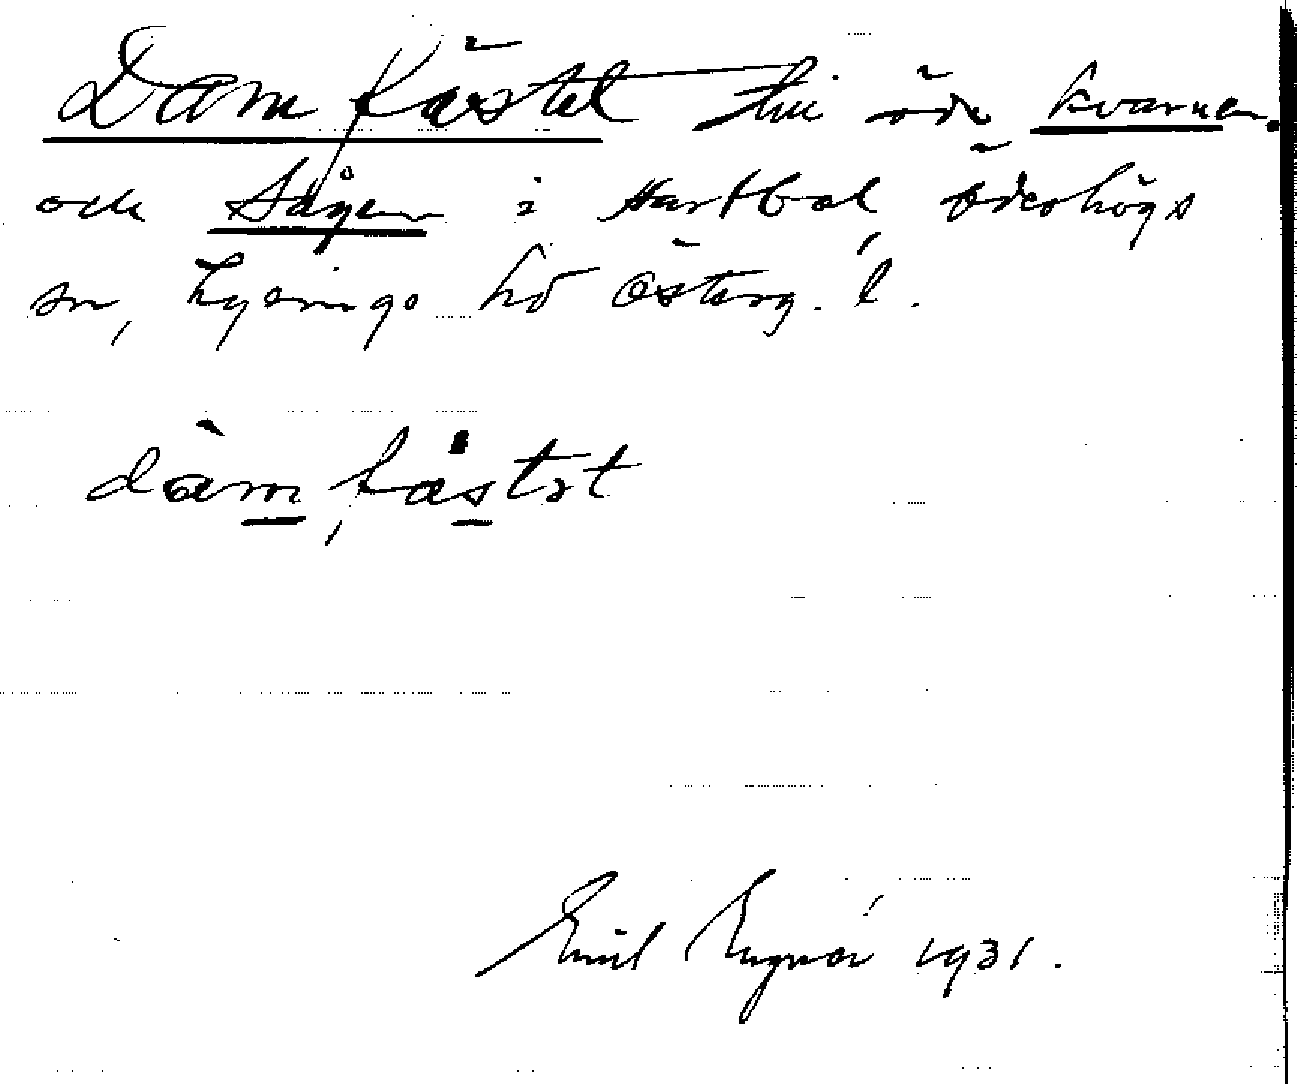 Damfästet till öde kvarnen
och Sågen i Hartbol, Ödeshögs
sn, Lysings hd Österg. l.
dàm, fästət
Emil 1931.